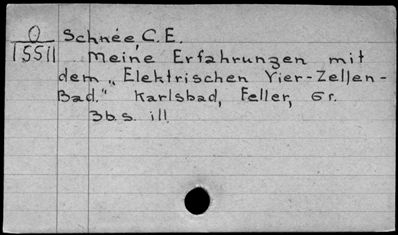 O Schnée, C.E.
15511 Meine Erfahrungen mit
dem „Elektrischen Vier-Zellen-
Bad." Karlsbad, Feller, Gr.
3b.s. ill.